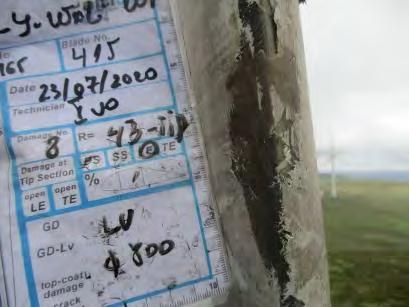 Blade No.
165 415
Date 23/07/2020
Technician IVO
Damage No. 8 R= 43-Tip
Damage at Tip Section PS SS LE TE
%
open LE open TE
GD LV
GD-Lv 4 800
top-coat damage
crack
10